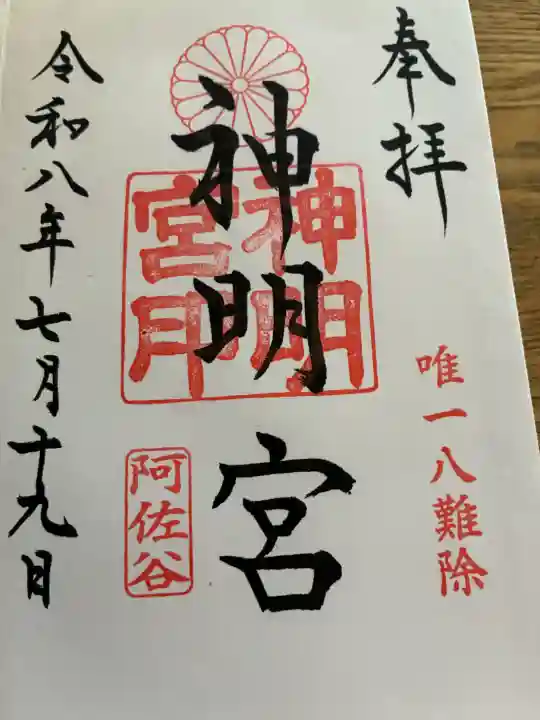 奉拝
唯一八難除
神明宮
神明宮印
阿佐谷
令和八年七月十九日